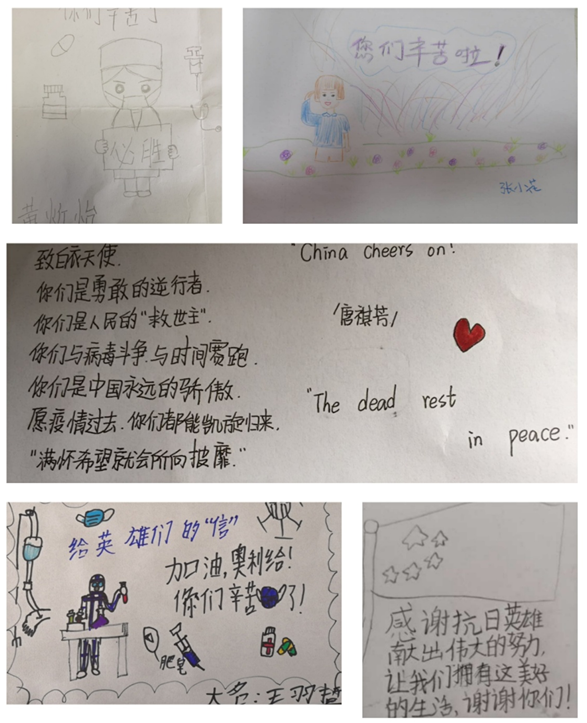 你们辛苦了
必胜
您们辛苦啦!
致白衣天使.
你们是勇敢的逆行者.
你们是人民的"救世主".
你们与病毒斗争.与时间赛跑.
你们是中国永远的骄傲.
愿疫情过去.你们都能凯旋归来.
"满怀希望就会所向披靡."
"China cheers on!
/唐祺芳/
"The dead rest
in peace."
给英雄们的“信”
加油,奥利给!
你们辛苦了!
肥皂
大名:王羽哲
感谢抗日英雄
献出伟大的努力,
让我们拥有这美好
的生活、谢谢你们!